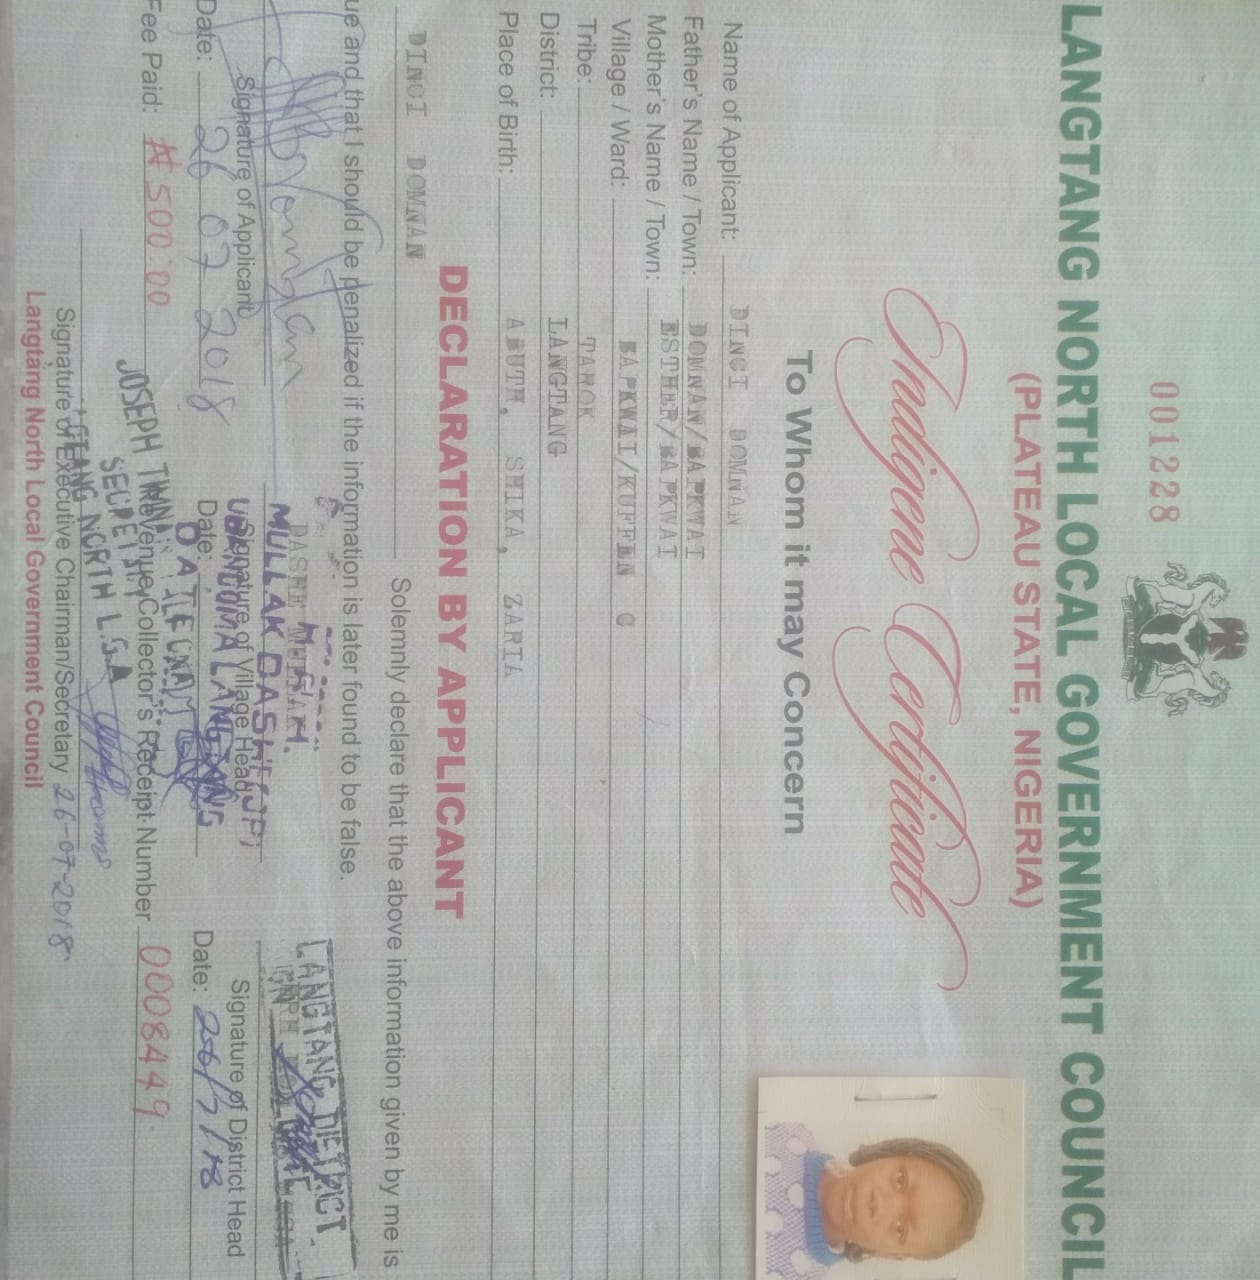 001228
LANGTANG NORTH LOCAL GOVERNMENT COUNCIL
(PLATEAU STATE, NIGERIA)
Indigene Certificate
To Whom it may Concern
Name of Applicant: DINCI DOMNAN
Father's Name / Town: DOMNAN/BAPKWAI
Mother's Name / Town: ESTHER/BAPKWAI
Village / Ward: BAPKWAI/KUFFEN G
Tribe: TAROK
District: LANGTANG
Place of Birth: ABUTH, SHIKA, ZARIA
DECLARATION BY APPLICANT
DINCI DOMNAN Solemnly declare that the above information given by me is
ue and that I should be penalized if the information is later found to be false.
LANGTANG DISTRICT
MULLAK DASHE (JP)
Signature of Applicant Signature of Village Head Signature of District Head
LANGTANG
Date: 26 07 2018 Date: Date: 26/7/18
Fee Paid: ₦ 500:00 Revenue Collector's Receipt Number 0008449
JOSEPH
NORTH L.G.A
Signature of Executive Chairman/Secretary 26-07-2018
Langtang North Local Government Council